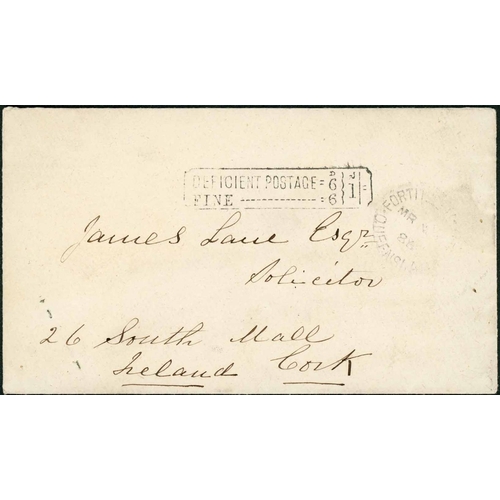 DEFICIENT POSTAGE = 6 } 1/=
FINE ---------- = 6
MR
86
James Lane Esqr
Solicitor
26 South Mall
Ireland Cork